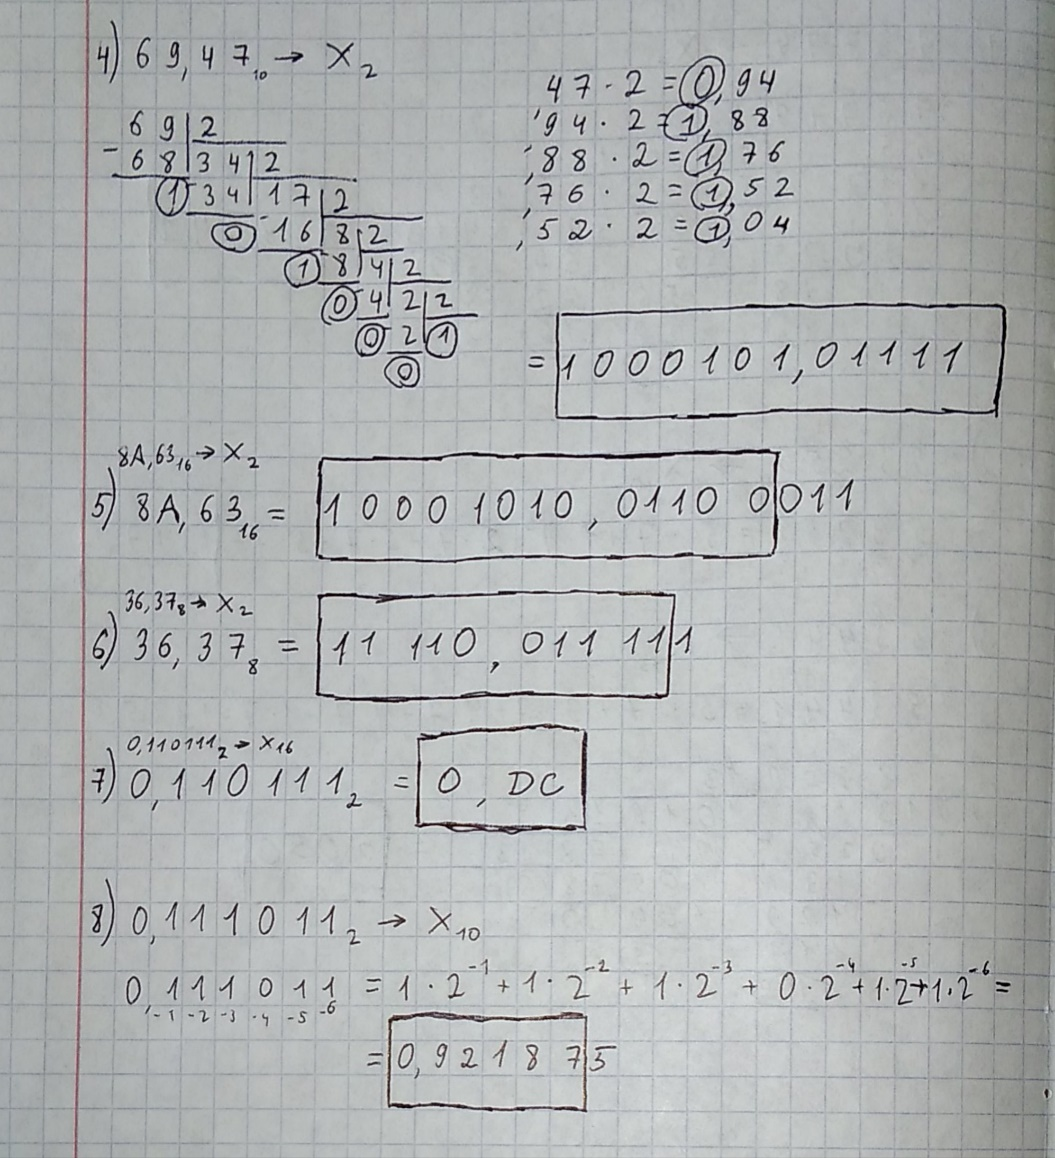 4) 69,47₁₀ → X₂
47 · 2 = 0,94
,94 · 2 = 1,88
,88 · 2 = 1,76
,76 · 2 = 1,52
,52 · 2 = 1,04
69 2
- 68 34 2
1 34 17 2
0 - 16 8 2
1 8 4 2
0 4 2 2
0 2 1
0
= 1000101,01111
8A,63₁₆ → X₂
5) 8A,63₁₆ = 1000 1010,0110 0011
36,37₈ → X₂
6) 36,37₈ = 11 110,011 111
0,110111₂ → X₁₆
7) 0,110111₂ = 0,DC
8) 0,111011₂ → X₁₀
0,111011 = 1·2⁻¹ + 1·2⁻² + 1·2⁻³ + 0·2⁻⁴ + 1·2⁻⁵ + 1·2⁻⁶ =
-1 -2 -3 -4 -5 -6
= 0,921875